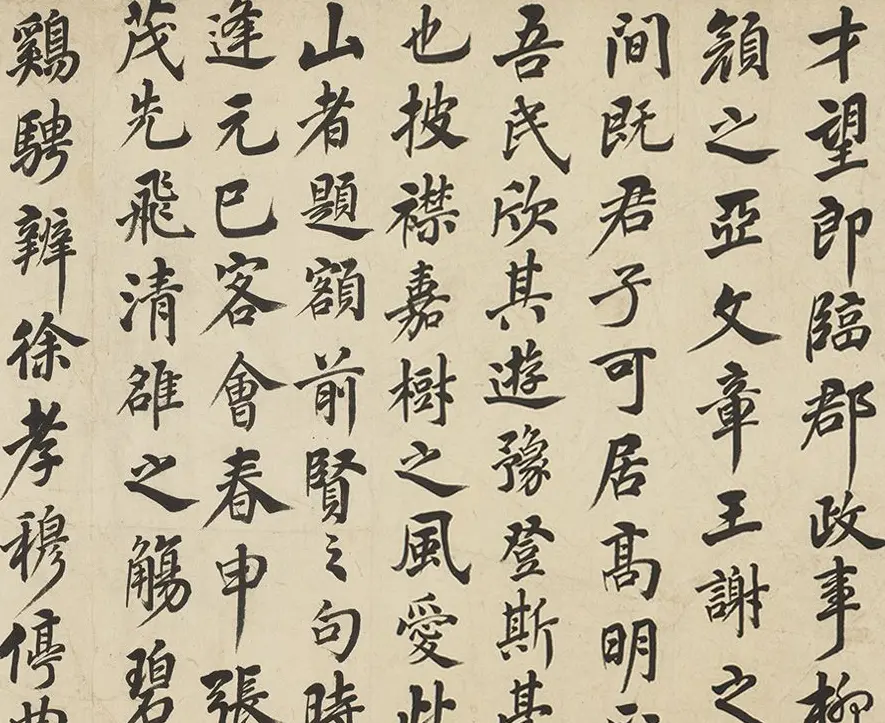 才望即臨郡政事柳
顏之亞文章王謝之
間既君子可居高明
吾民欣其遊豫登斯
也披襟嘉樹之風愛此
山者題額前賢之句時
逢元巳客會春申張
茂先飛清雄之觴碧
鷄騁辨徐孝穆停